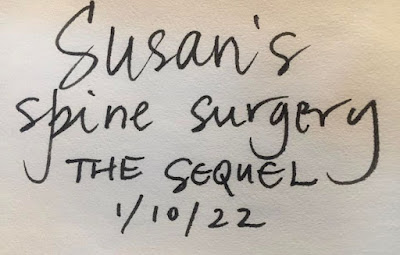 Susan's
spine surgery
THE SEQUEL
1/10/22